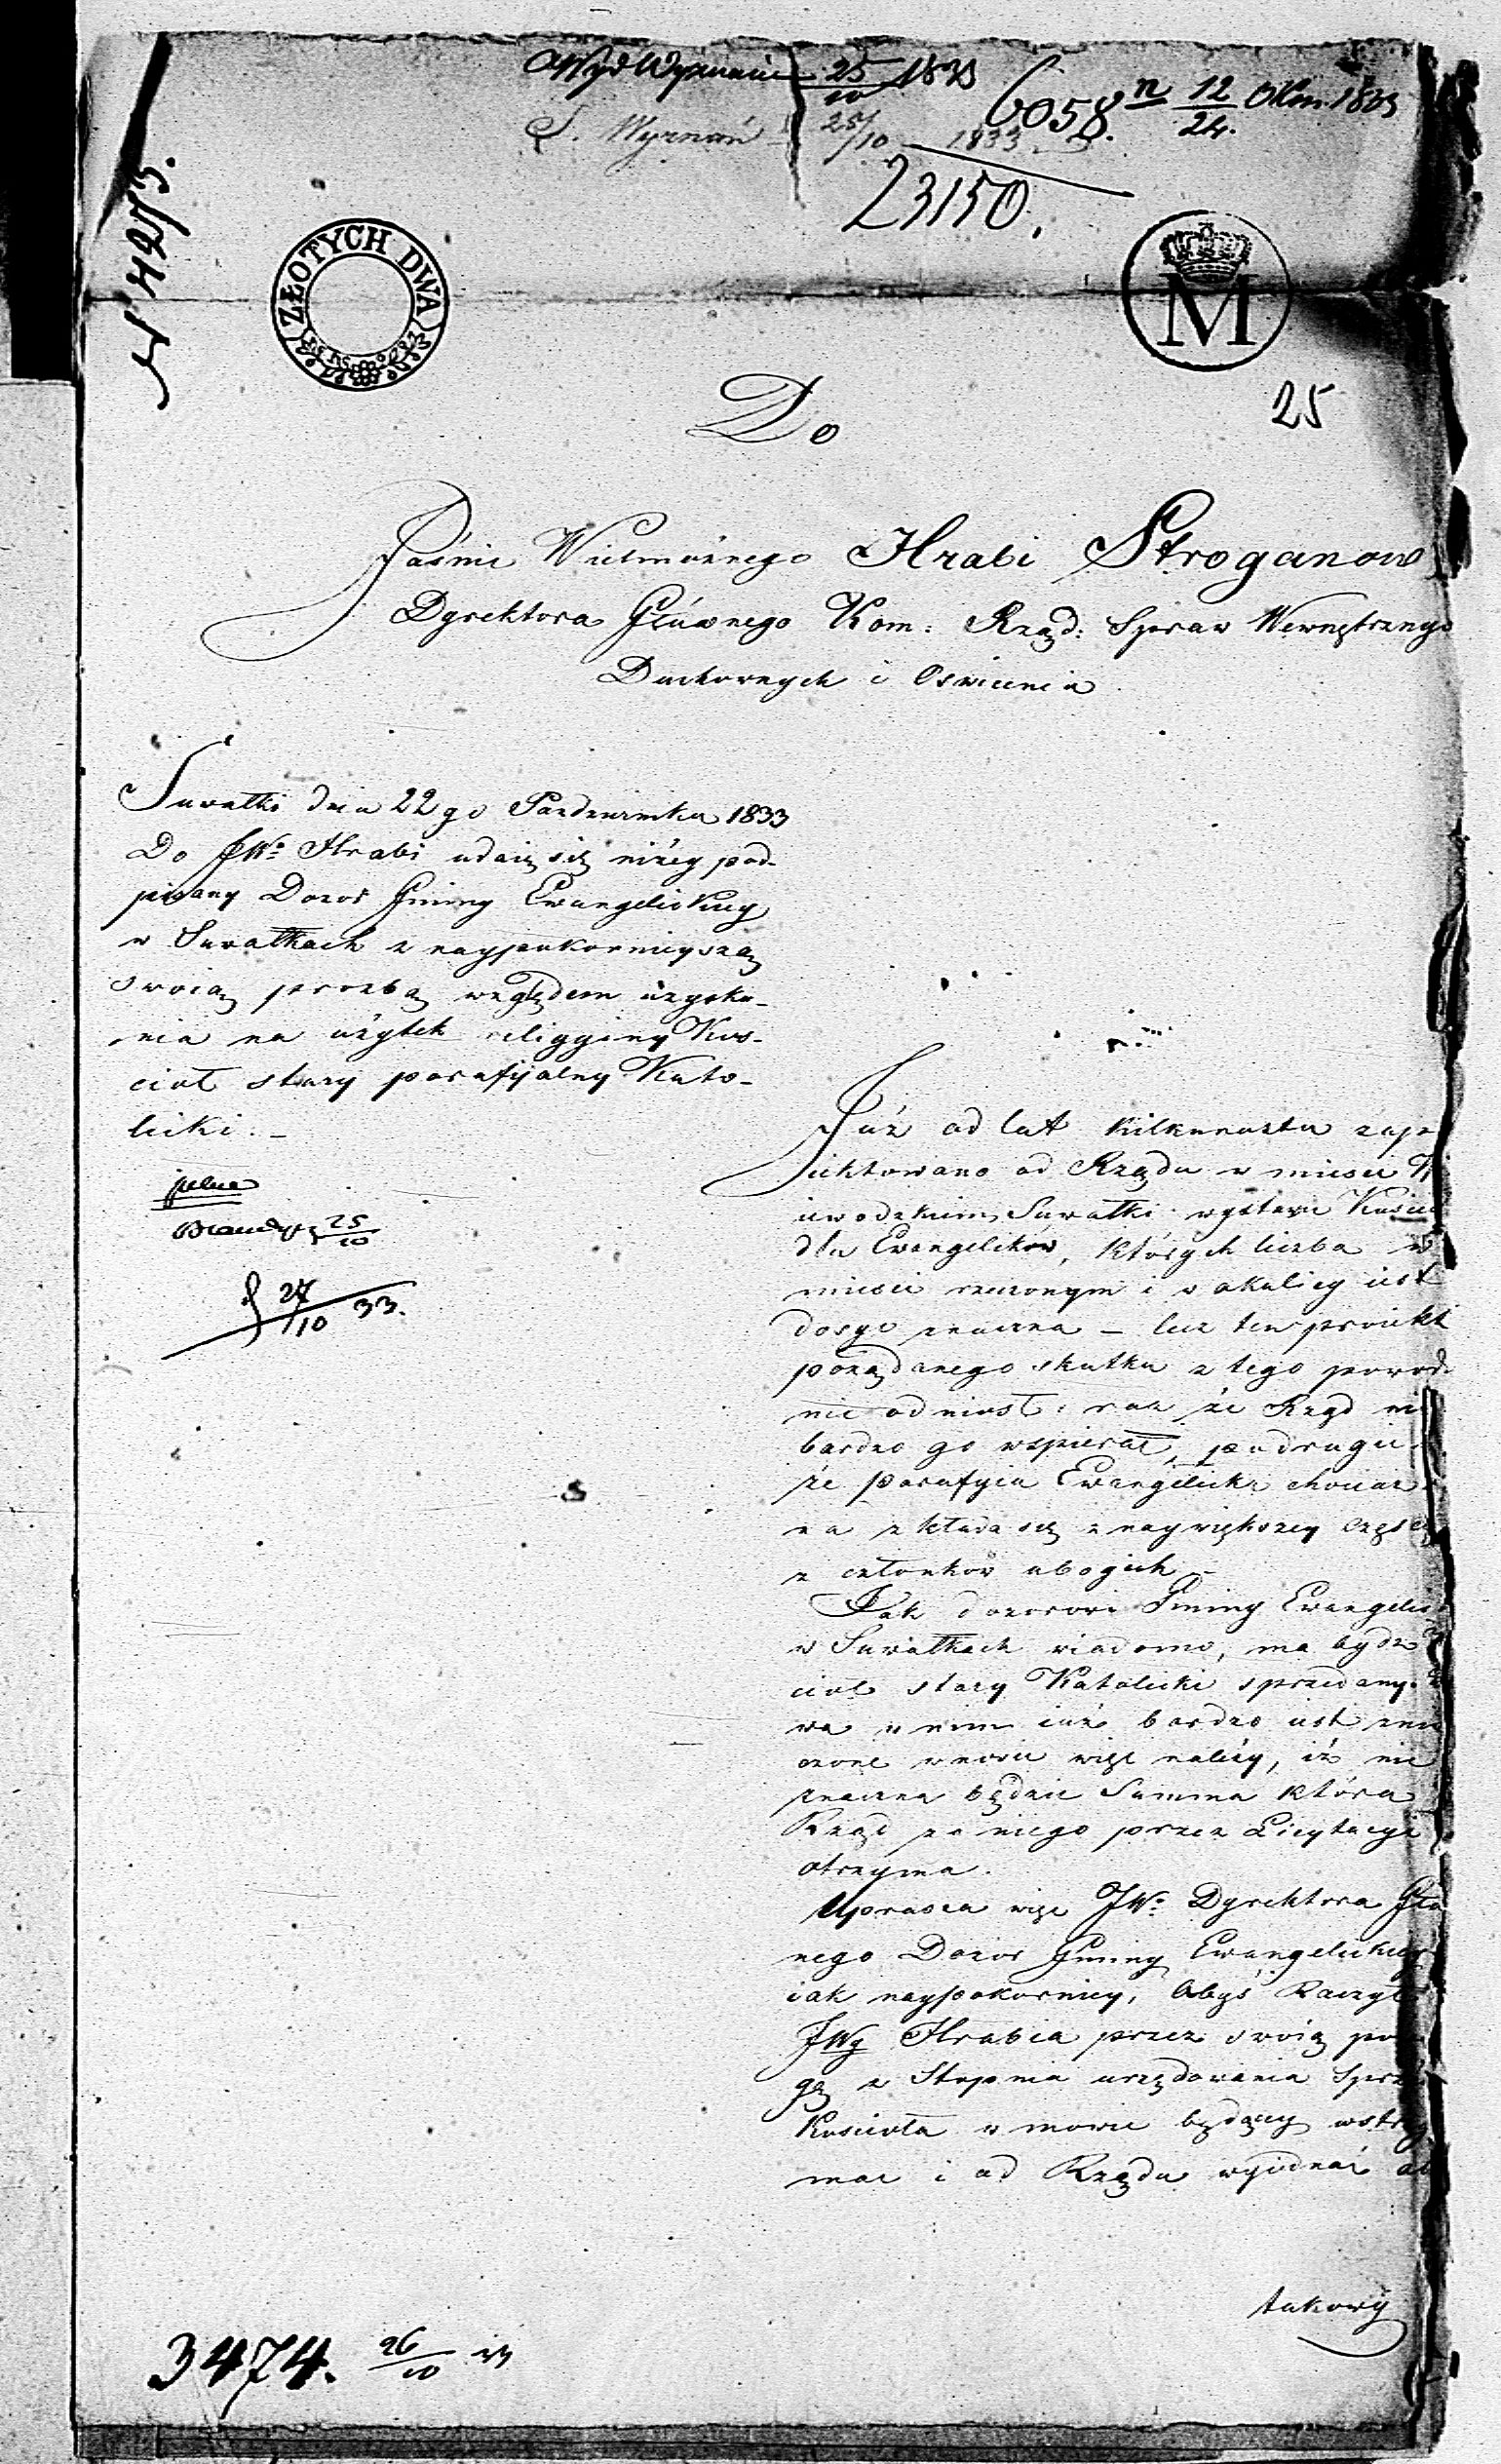 Wyd Wyznań 25/10 1833
6058. n 12/24. 1833
S. Wyznań 25/10 1833
23150.
ZŁOTYCH DWA
M
25
Do
Jaśnie Wielmożnego Hrabi Stroganow
Dyrektora Głównego Kom: Rząd: Spraw Wewnętrznyc
Duchownych i Oswiecenia
Suwałki dnia 22go Pazdziernika 1833
Do JWo Hrabi udaie się niżey pod-
pisany Dozor Gminy Ewangelickiey
w Suwałkach z naypokornieyszą
swoią prozbą względem uzyska-
nia na użytek religyiny Kos-
cioł stary parafijalny Kato-
licki. –
25/10
27/10 33.
Już od lat kilkunastu zapr
iektowano od Rządu w miescie W
iewodzkiem Suwałki wystawic Koscio
dla Ewangelikow, których liczba w
miescie rzeczonym i w okolicy iest
dosyc znaczna – lecz ten proiekt
porządanego skutku z tego powod
nie odniosł: raz że Rząd nie
bardzo go wspierał, podrugie
że parafyia Ewangelicka chociaz
na składa się z naywiększey częsci
z członkow ubogich –
Jak dozorowi Gminy Ewangelic
w Suwałkach wiadomo, ma bydz
cioł stary Katolicki sprzedany.
wa w nim iuż bardzo iest znis
czone wnosic więc należy, iż nie
znaczna będzie Summa która
Rząd za niego przez Licytacye
otrzyma.
Uprasza więc JWo Dyrektora Głó
nego Dozor Gminy Ewangelickiey
iak naypokorniey, Abyś Raczył
JWy Hrabia przez swoią po
gę z Stopnia urzędowania Sprz
Koscioła w mowie będący wstrzy
mac i od Rządu wyiednać ab
takowy
3474. 26/10 33